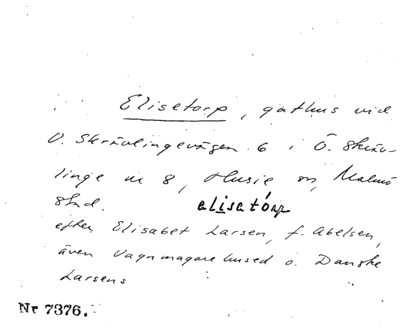 Elisetorp, gathus vid
V. Skrävlingevägen 6 i Ö. Skräv-
linge nr 8, Husie sn, Malmö
stad. elisetórp
efter Elisabet Larsen, f. Abelsen,
även Vagnmagarehuset o. Danske
Larsens
Nr 7376.